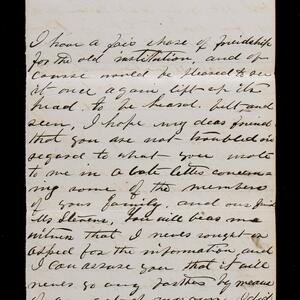 I have a fair share of friendship
for the old institution, and of
course would be pleased to see
it once again lift up its
head to be heard, felt and
seen, I hope my dear friend
that you are not troubled in
regard to what you wrote
to me in a late letter concern
ing some of the members
of your family, and our friend
Stevens, You will bear me
witness that I never sought or
asked for the information and
I can assure you that it will
never go any farther by means
of any act of my own